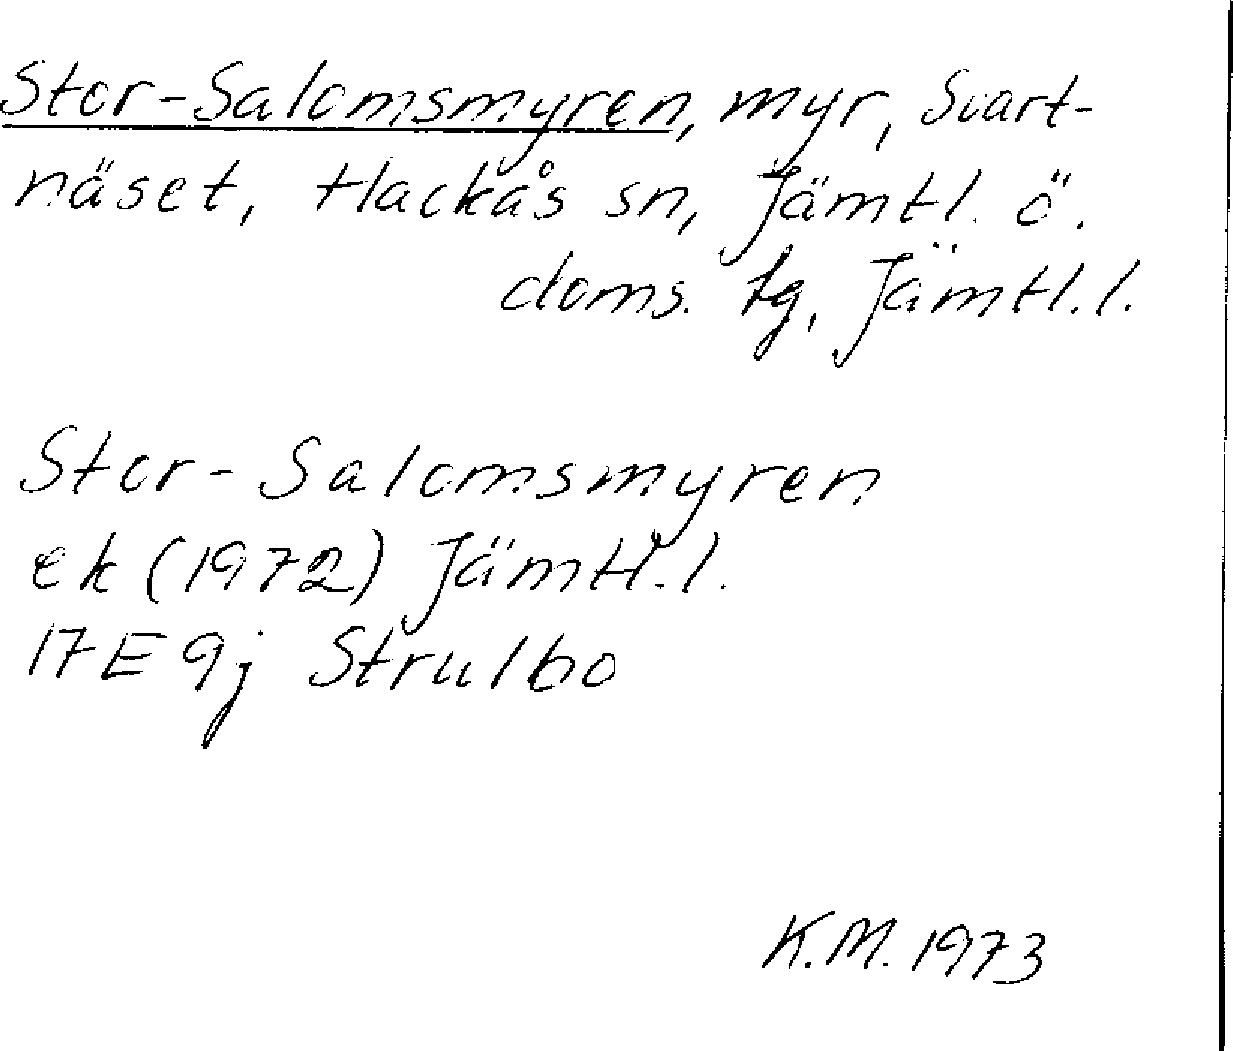 Stor-Salomsmyren, myr, Svart-
näset, Hackås sn, Jämtl. ö.
doms. tg, Jämtl.l.
Stor-Salomsmyren
ek (1972) Jämtl.l.
17E 9j Strulbo
K.M. 1973